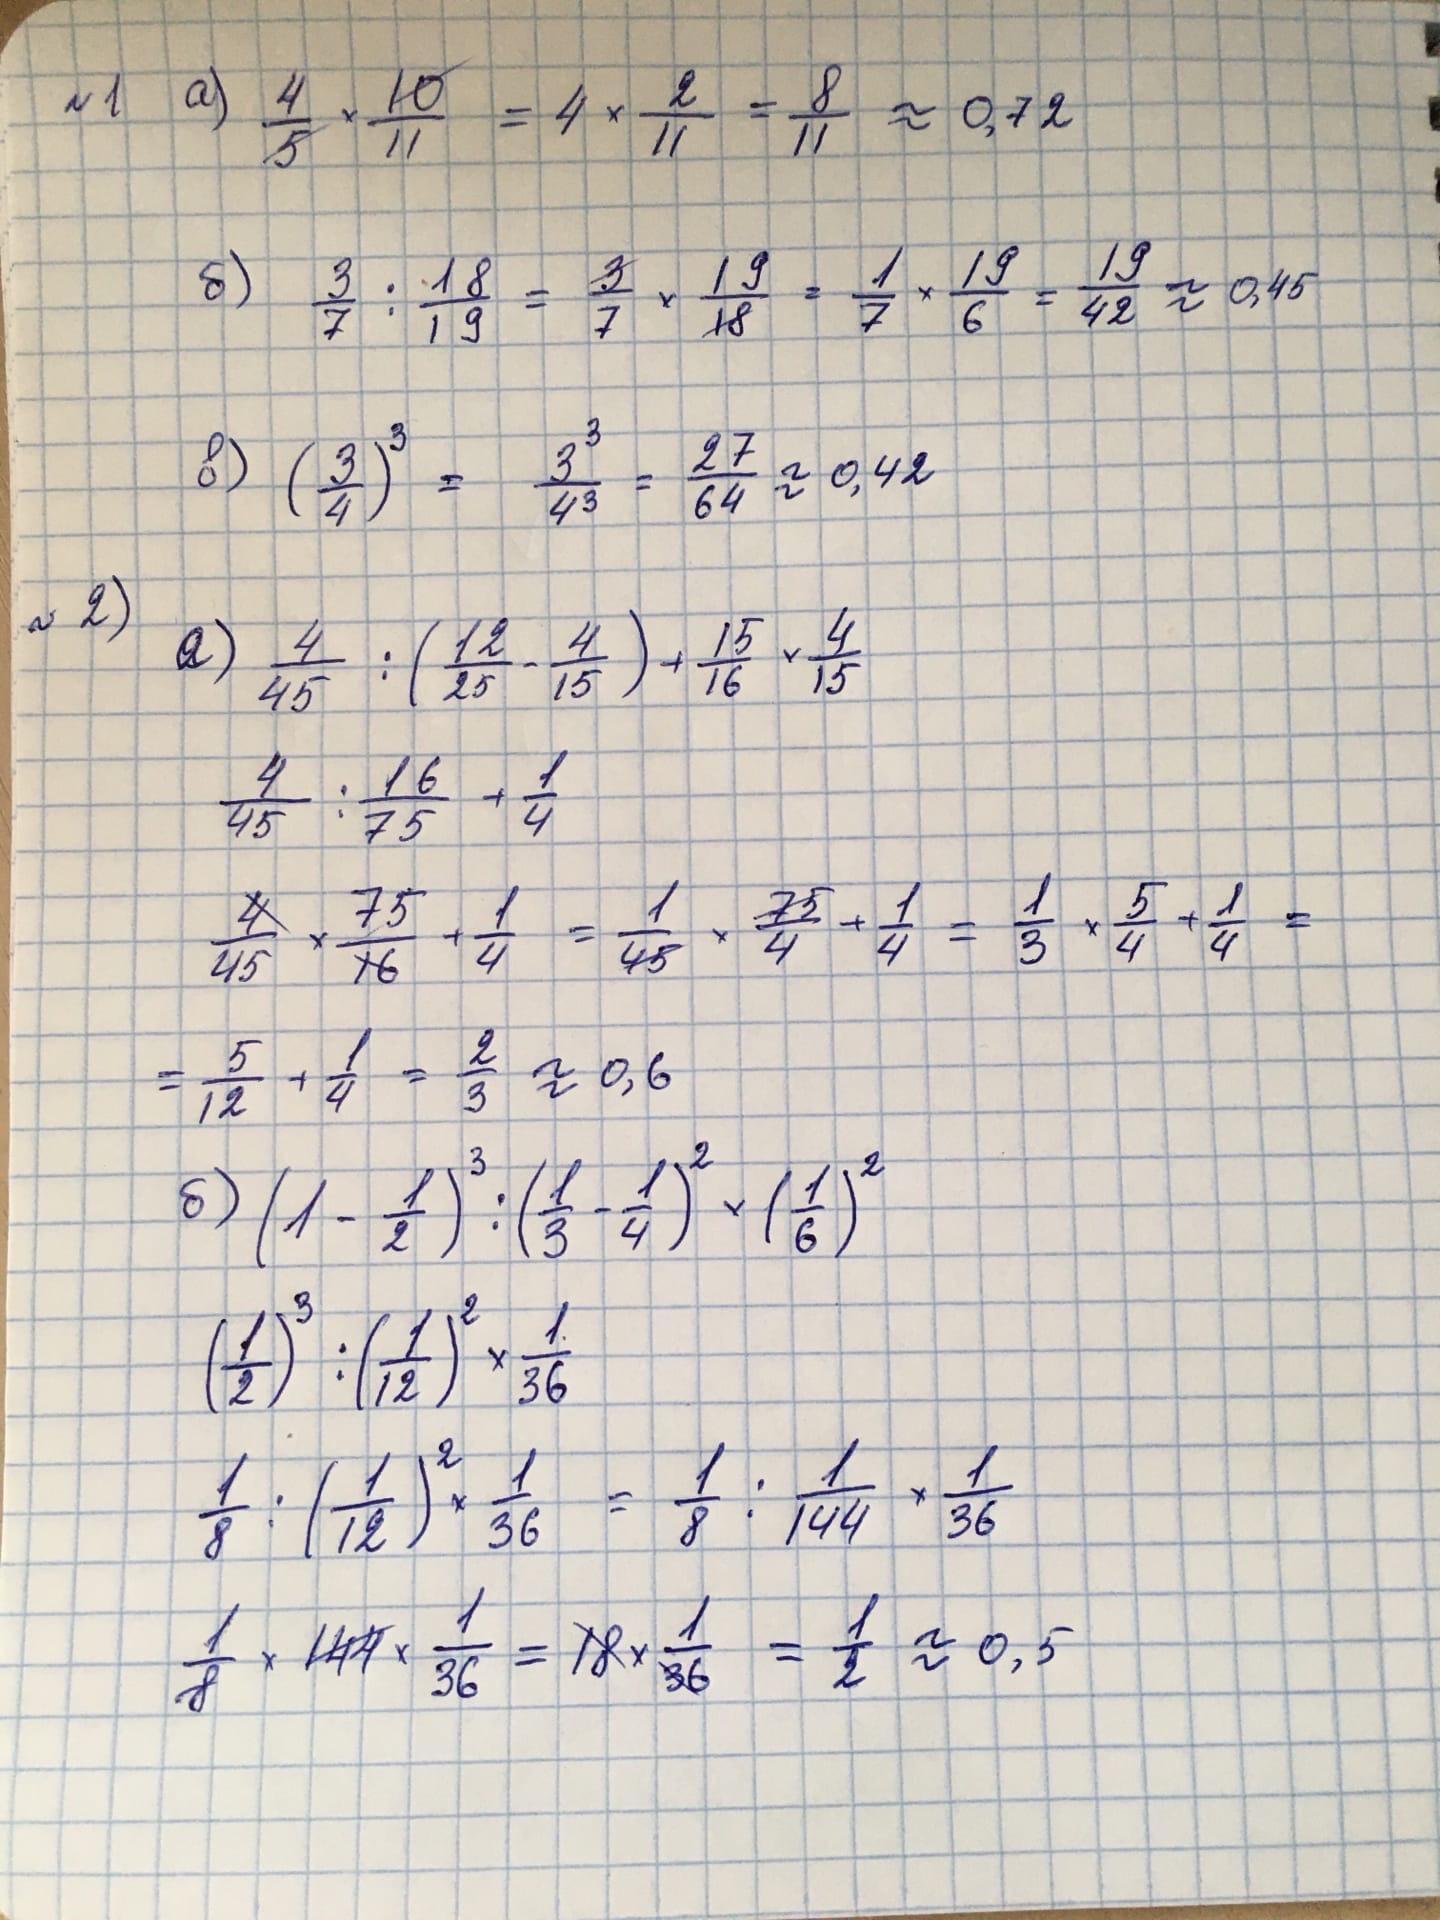 №1 а) 4/5 × 10/11 = 4 × 2/11 = 8/11 ≈ 0,72
б) 3/7 : 18/19 = 3/7 × 19/18 = 1/7 × 19/6 = 19/42 ≈ 0,45
в) (3/4)³ = 3³/4³ = 27/64 ≈ 0,42
№ 2)
а) 4/45 : (12/25 - 4/15) + 15/16 × 4/15
4/45 : 16/75 + 1/4
4/45 × 75/16 + 1/4 = 1/45 × 75/4 + 1/4 = 1/3 × 5/4 + 1/4 =
= 5/12 + 1/4 = 2/3 ≈ 0,6
б) (1 - 1/2)³ : (1/3 - 1/4)² × (1/6)²
(1/2)³ : (1/12)² × 1/36
1/8 : (1/12)² × 1/36 = 1/8 : 1/144 × 1/36
1/8 × 144 × 1/36 = 18 × 1/36 = 1/2 ≈ 0,5